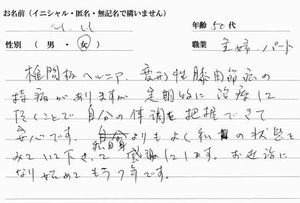 お名前（イニシャル・匿名・無記名で構いません）
年齢 50代
性別（ 男 ・ 女 ）
職業 主婦・パート
椎間板ヘルニア、変形性膝関節症の
持病がありますが 定期的に治療して
頂くことで 自分の体調を把握できて
安心です。私自身よりもよく私の状態を
みていて下さって 感謝しています。お世話に
なり始めてもう7年です。